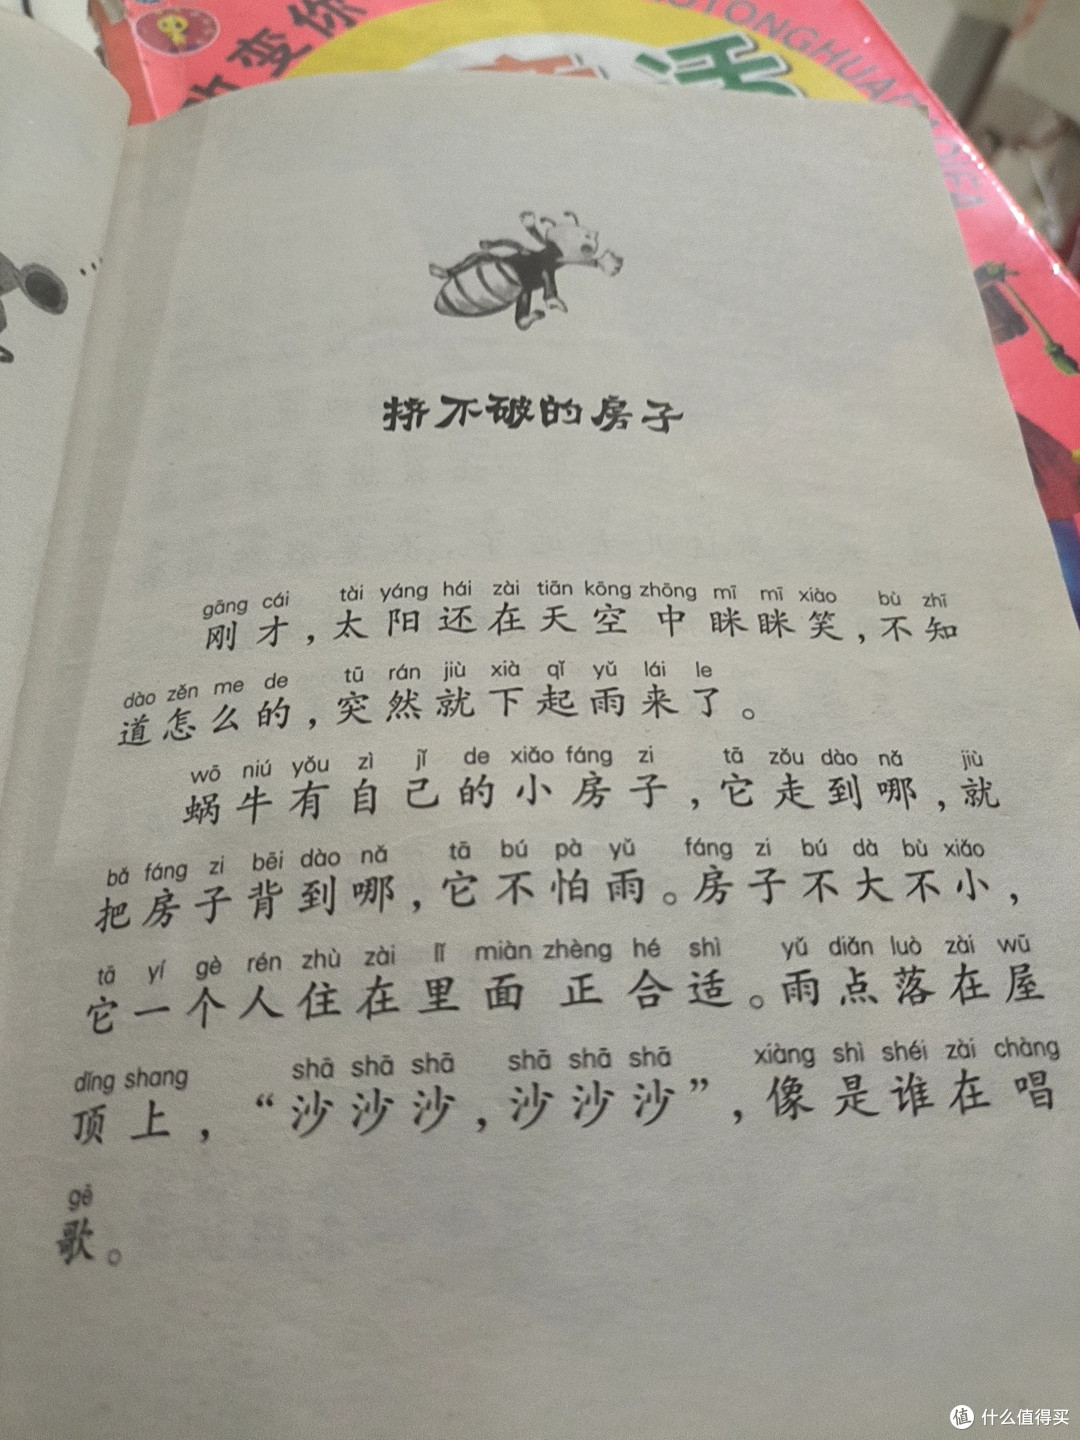 变你
TONGHUA
挤不破的房子
gāng cái tài yáng hái zài tiān kōng zhōng mī mī xiào bù zhī
刚才,太阳还在天空中眯眯笑,不知
dào zěn me de tū rán jiù xià qǐ yǔ lái le
道怎么的,突然就下起雨来了。
wō niú yǒu zì jǐ de xiǎo fáng zi tā zǒu dào nǎ jiù
蜗牛有自己的小房子,它走到哪,就
bǎ fáng zi bēi dào nǎ tā bú pà yǔ fáng zi bú dà bù xiǎo
把房子背到哪,它不怕雨。房子不大不小,
tā yí gè rén zhù zài lǐ miàn zhèng hé shì yǔ diǎn luò zài wū
它一个人住在里面正合适。雨点落在屋
dǐng shang shā shā shā shā shā shā xiàng shì shéi zài chàng
顶上,“沙沙沙,沙沙沙”,像是谁在唱
gē
歌。
值 什么值得买